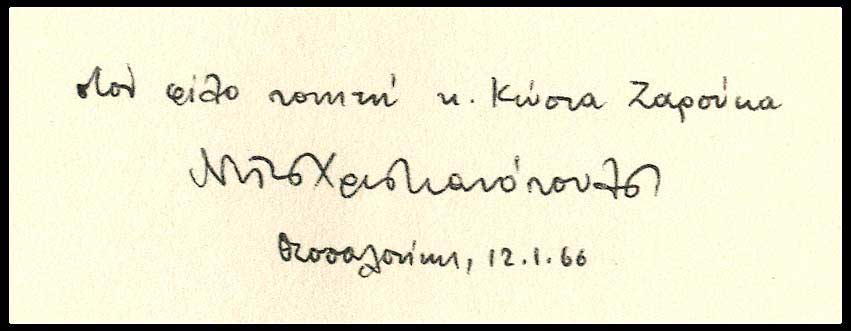 στον φίλο ποιητή κ. Κώστα Ζαρούκα
Ντίνος Χριστιανόπουλος
Θεσσαλονίκη, 12.1.66